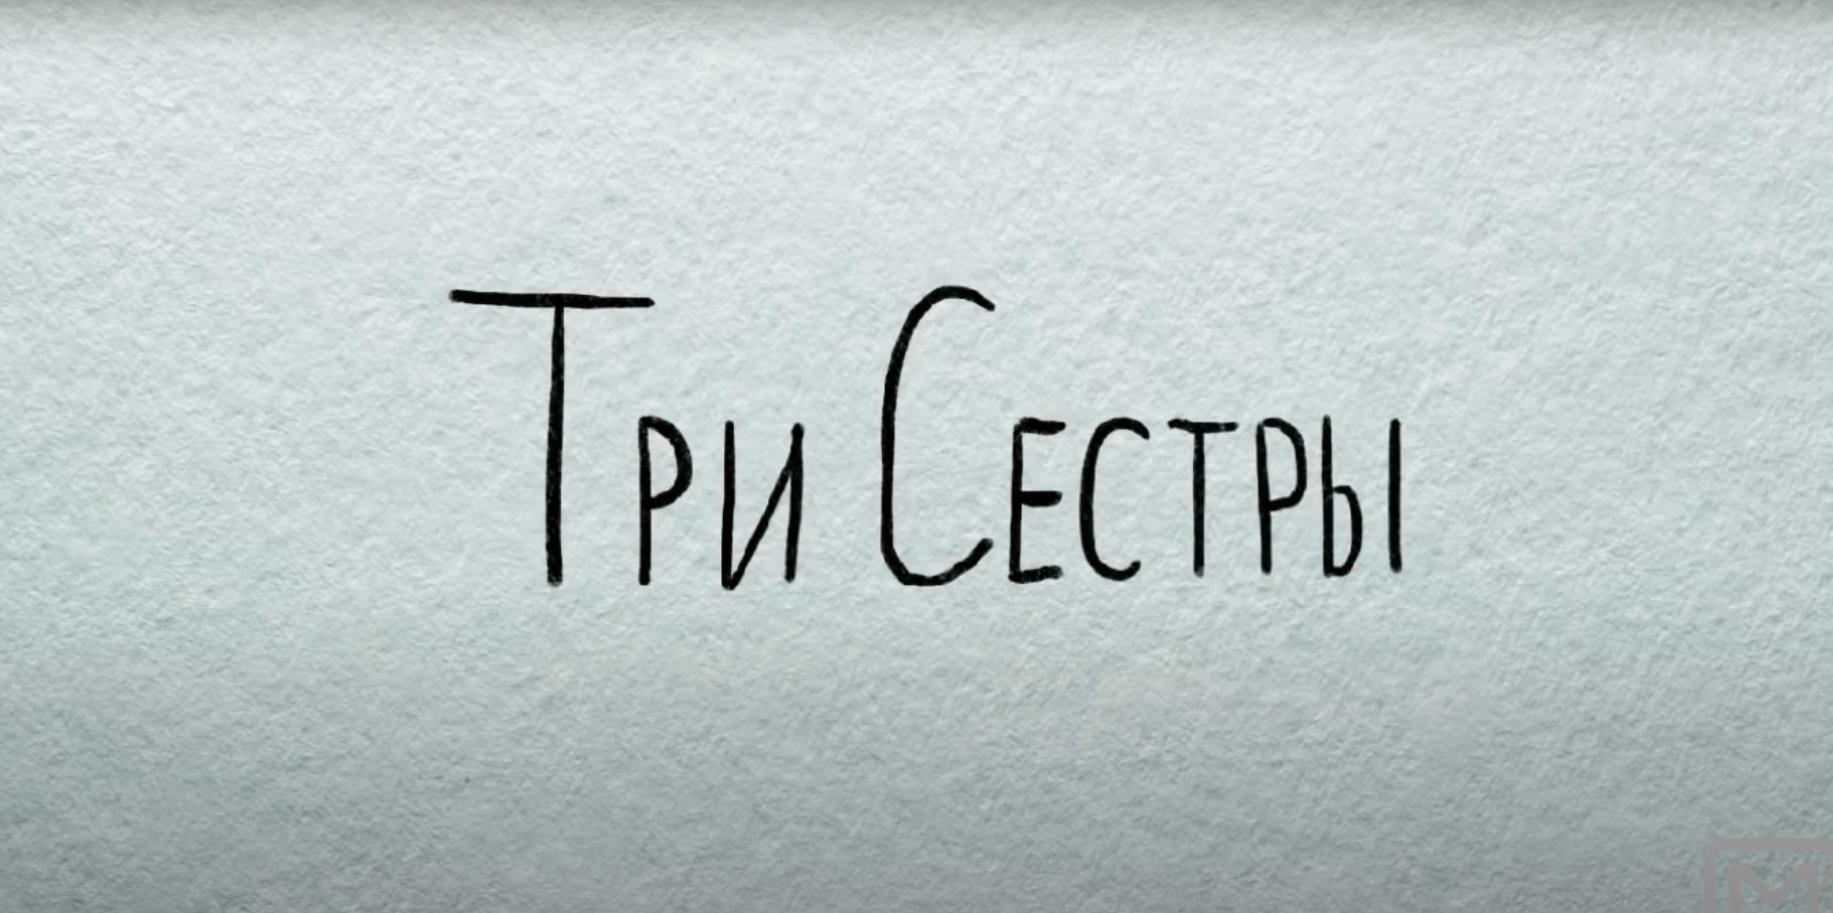 Три Сестры